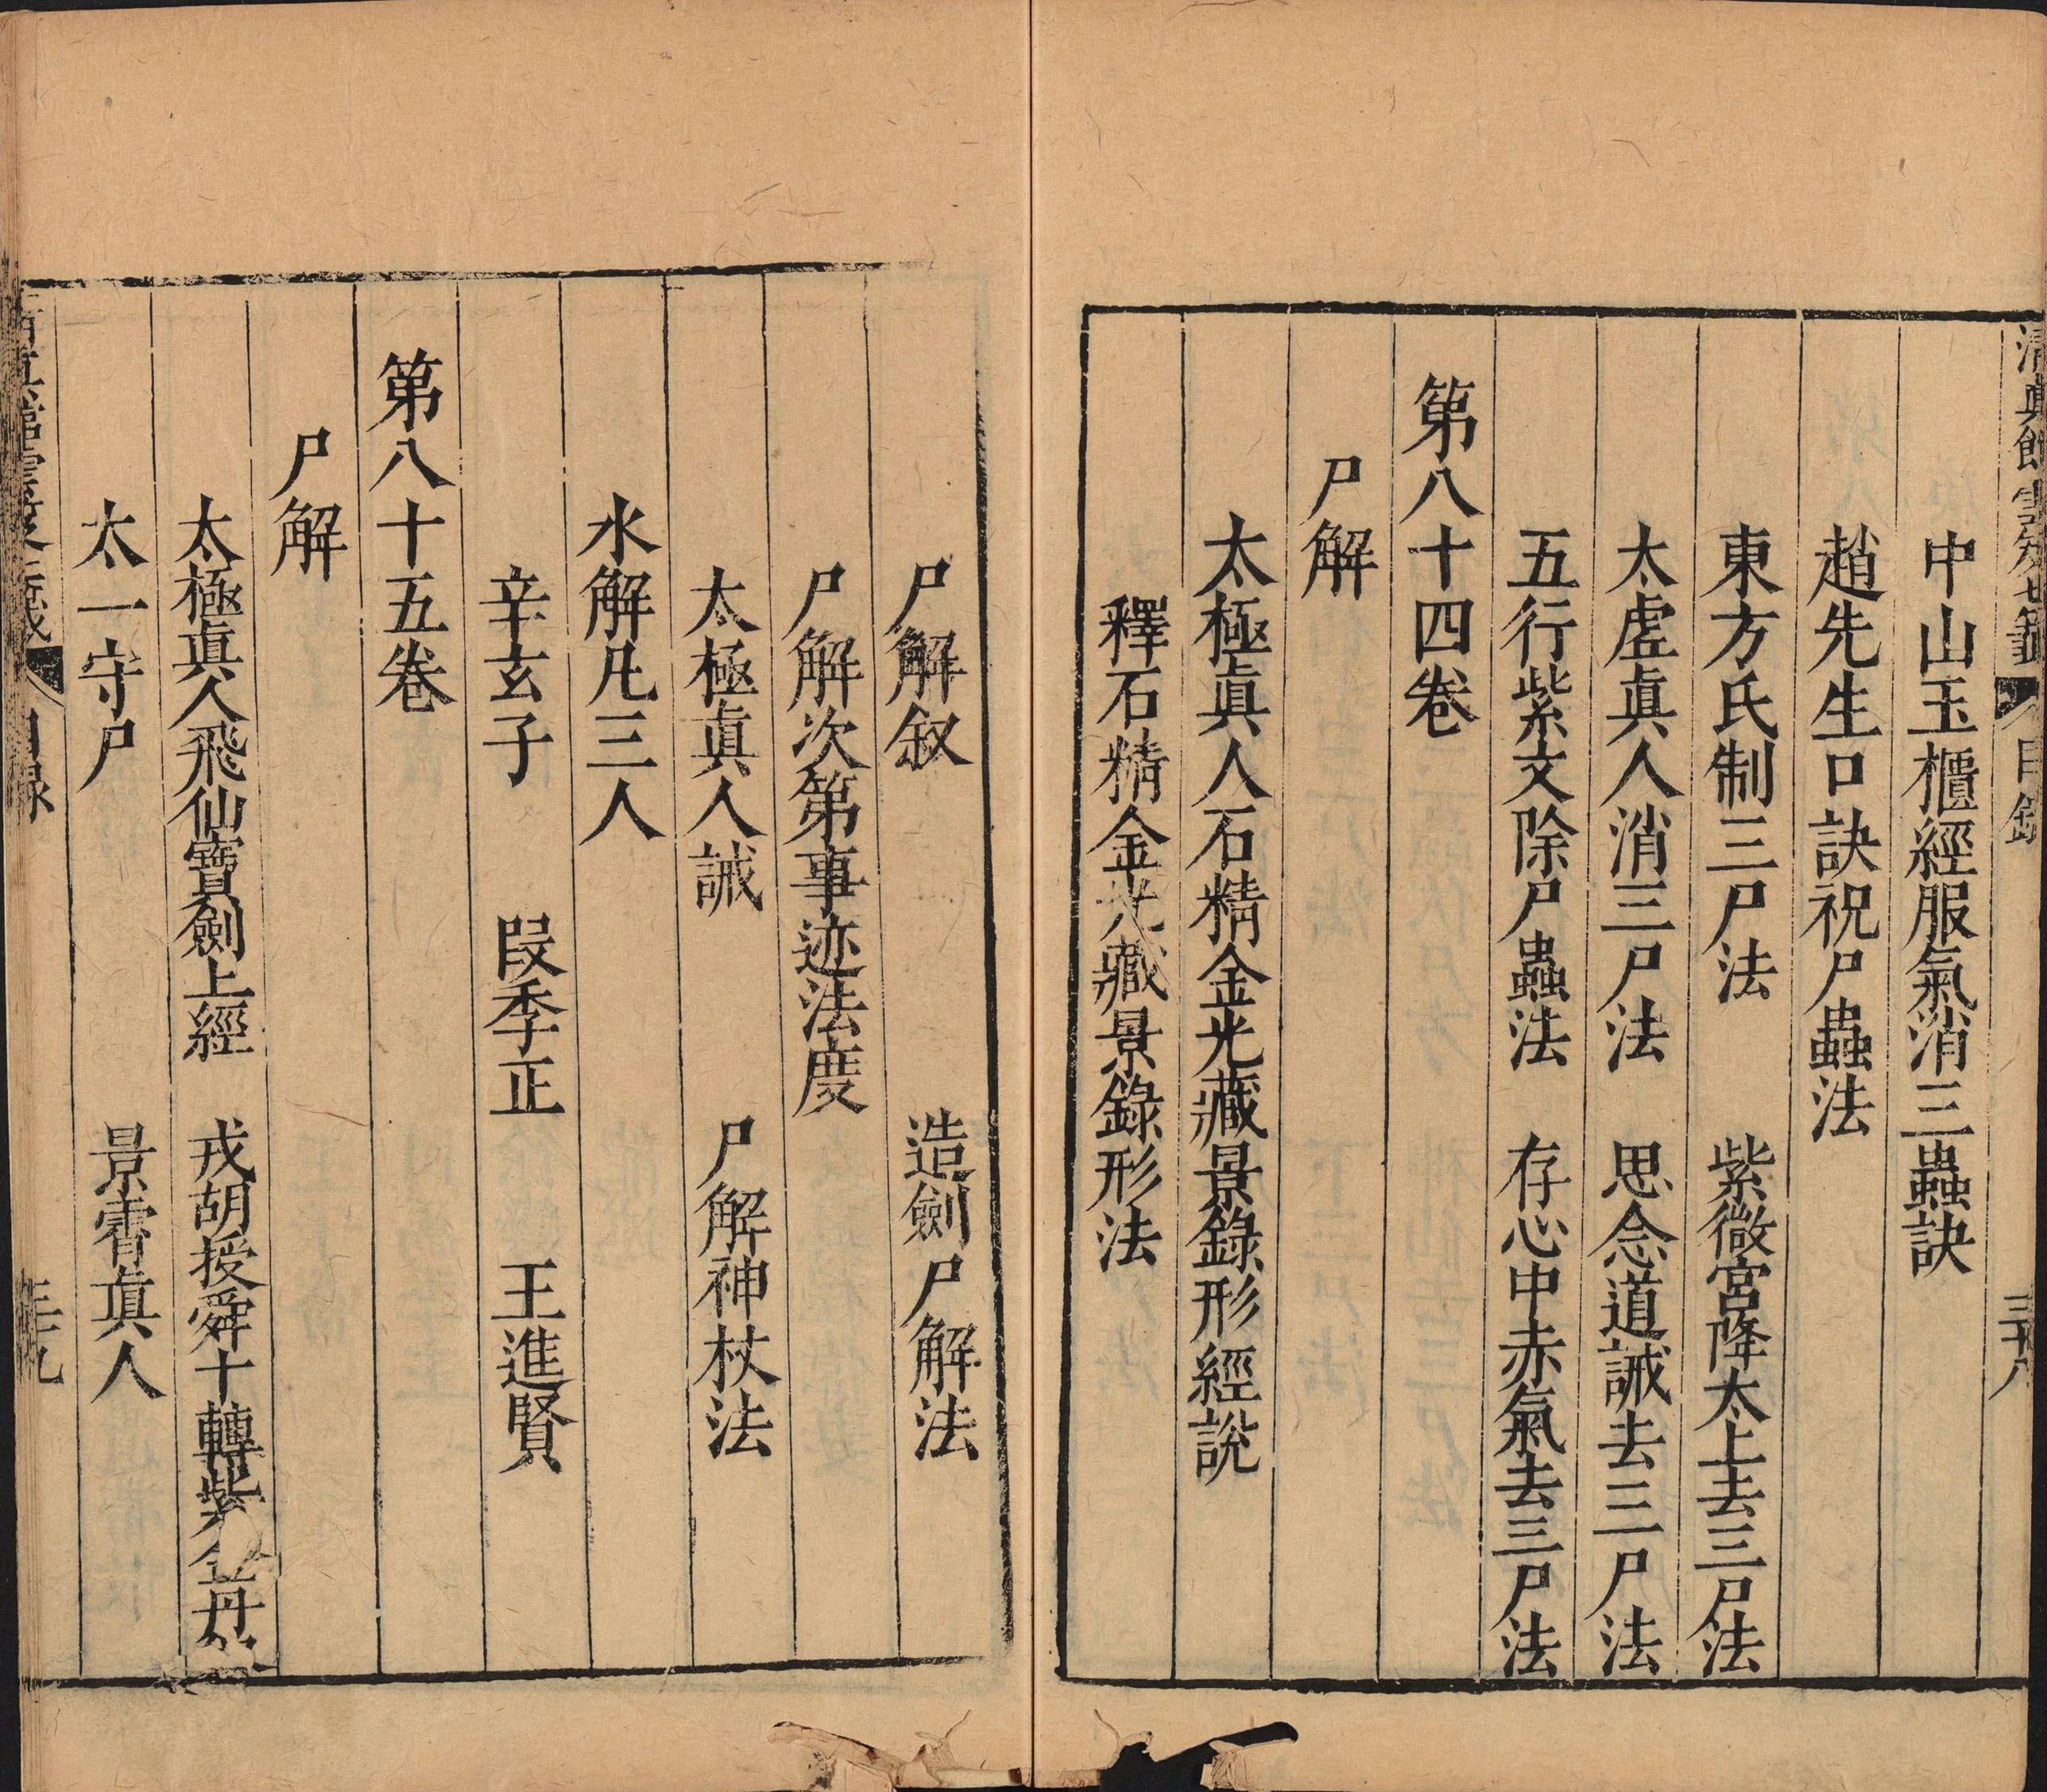 清真館雲笈七籤 目錄 三十八
中山玉櫃經服氣消三蟲訣
趙先生口訣祝尸蟲法
東方氏制三尸法 紫微宮降太上去三尸法
太虛眞人消三尸法 思念道誡去三尸法
五行紫文除尸蟲法 存心中赤氣去三尸法
第八十四卷
尸解
太極眞人石精金光藏景錄形經說
釋石精金光藏景錄形法
尸解叙 造劍尸解法
尸解次第事迹法度
太極眞人誡 尸解神杖法
水解凡三人
辛玄子 段季正 王進賢
第八十五卷
尸解
太極眞人飛仙寶劍上經 戎胡授舜十轉紫金丹
太一守尸 景霄眞人
目録 三十九